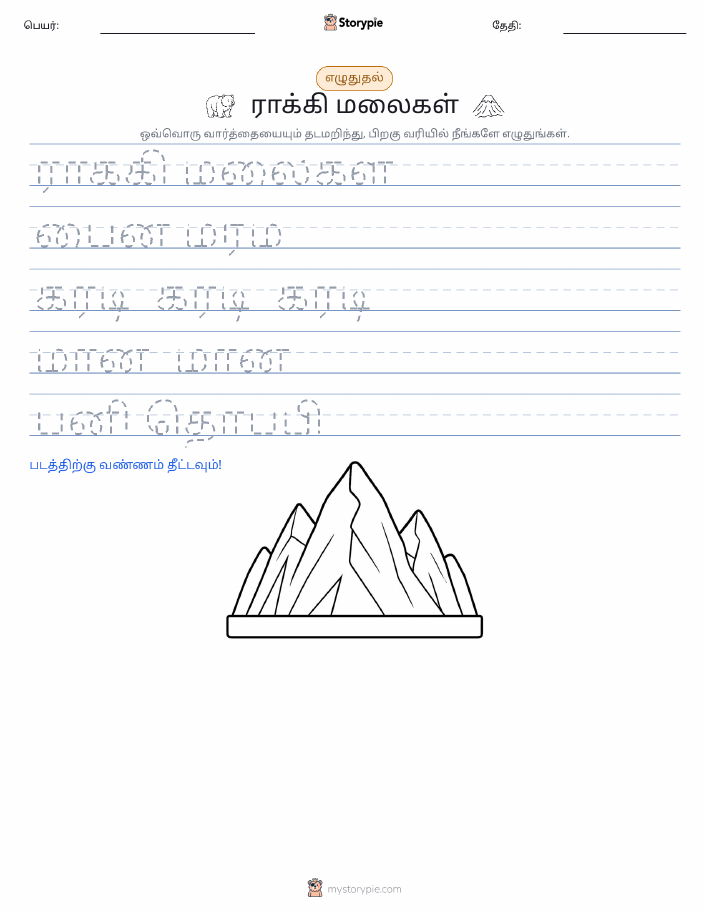 பெயர்:
Storypie
தேதி:
எழுதுதல்
ராக்கி மலைகள்
ஒவ்வொரு வார்த்தையையும் தடமறிந்து, பிறகு வரியில் நீங்களே எழுதுங்கள்.
ராககி மலைகள
பைன மரம
கரடி கரடி கரடி
மான மான
பனி தொபபி
படத்திற்கு வண்ணம் தீட்டவும்!
mystorypie.com